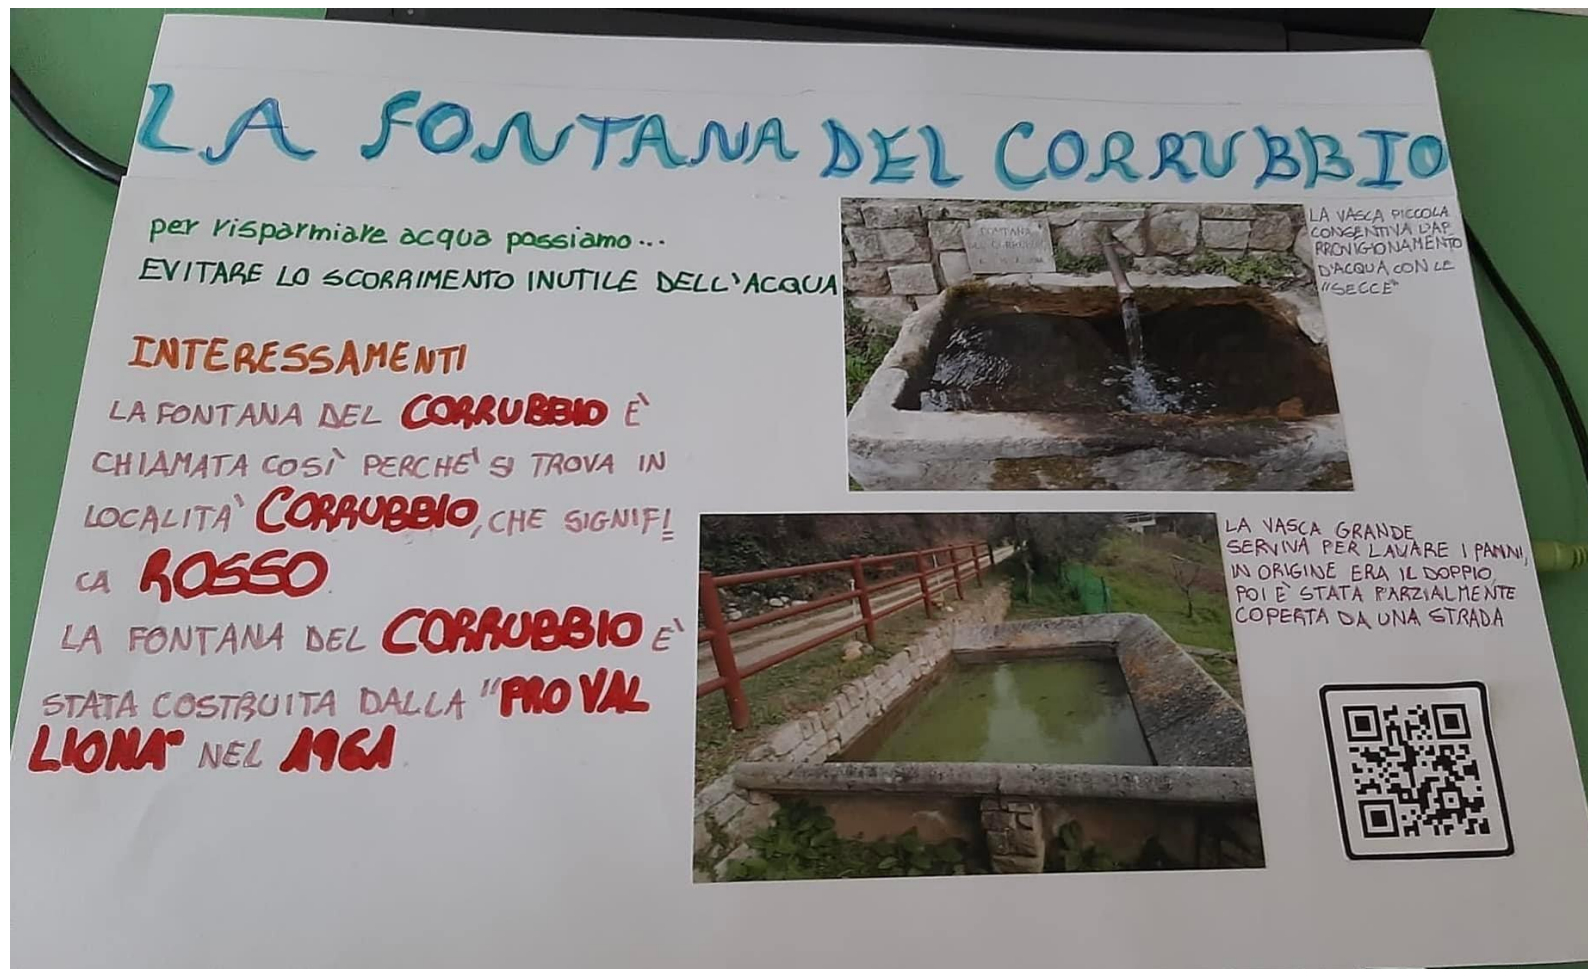 LA FONTANA DEL CORRUBBIO
per risparmiare acqua possiamo...
EVITARE LO SCORRIMENTO INUTILE DELL'ACQUA
INTERESSAMENTI
LA FONTANA DEL CORRUBBIO È
CHIAMATA COSÌ PERCHE' SI TROVA IN
LOCALITA' CORRUBBIO, CHE SIGNIFI
CA ROSSO.
LA FONTANA DEL CORRUBBIO È
STATA COSTRUITA DALLA "PRO VAL
LIONA" NEL 1961.
LA VASCA PICCOLA
CONSENTIVA L'AP
PROVIGIONAMENTO
D'ACQUA CON LE
"SECCE"
FONTANA
LA VASCA GRANDE
SERVIVA PER LAVARE I PANNI,
IN ORIGINE ERA IL DOPPIO,
POI È STATA PARZIALMENTE
COPERTA DA UNA STRADA